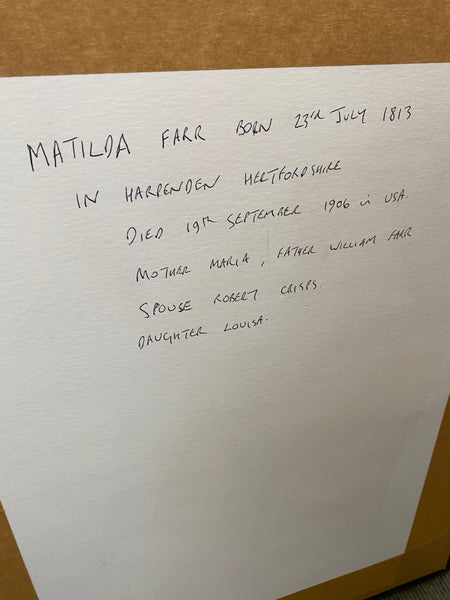 MATILDA FARR BORN 23rd JULY 1813
IN HARPENDEN HERTFORDSHIRE
DIED 19th SEPTEMBER 1906 in USA.
MOTHER MARIA, FATHER WILLIAM FARR
SPOUSE ROBERT CRISPS.
DAUGHTER LOUISA.